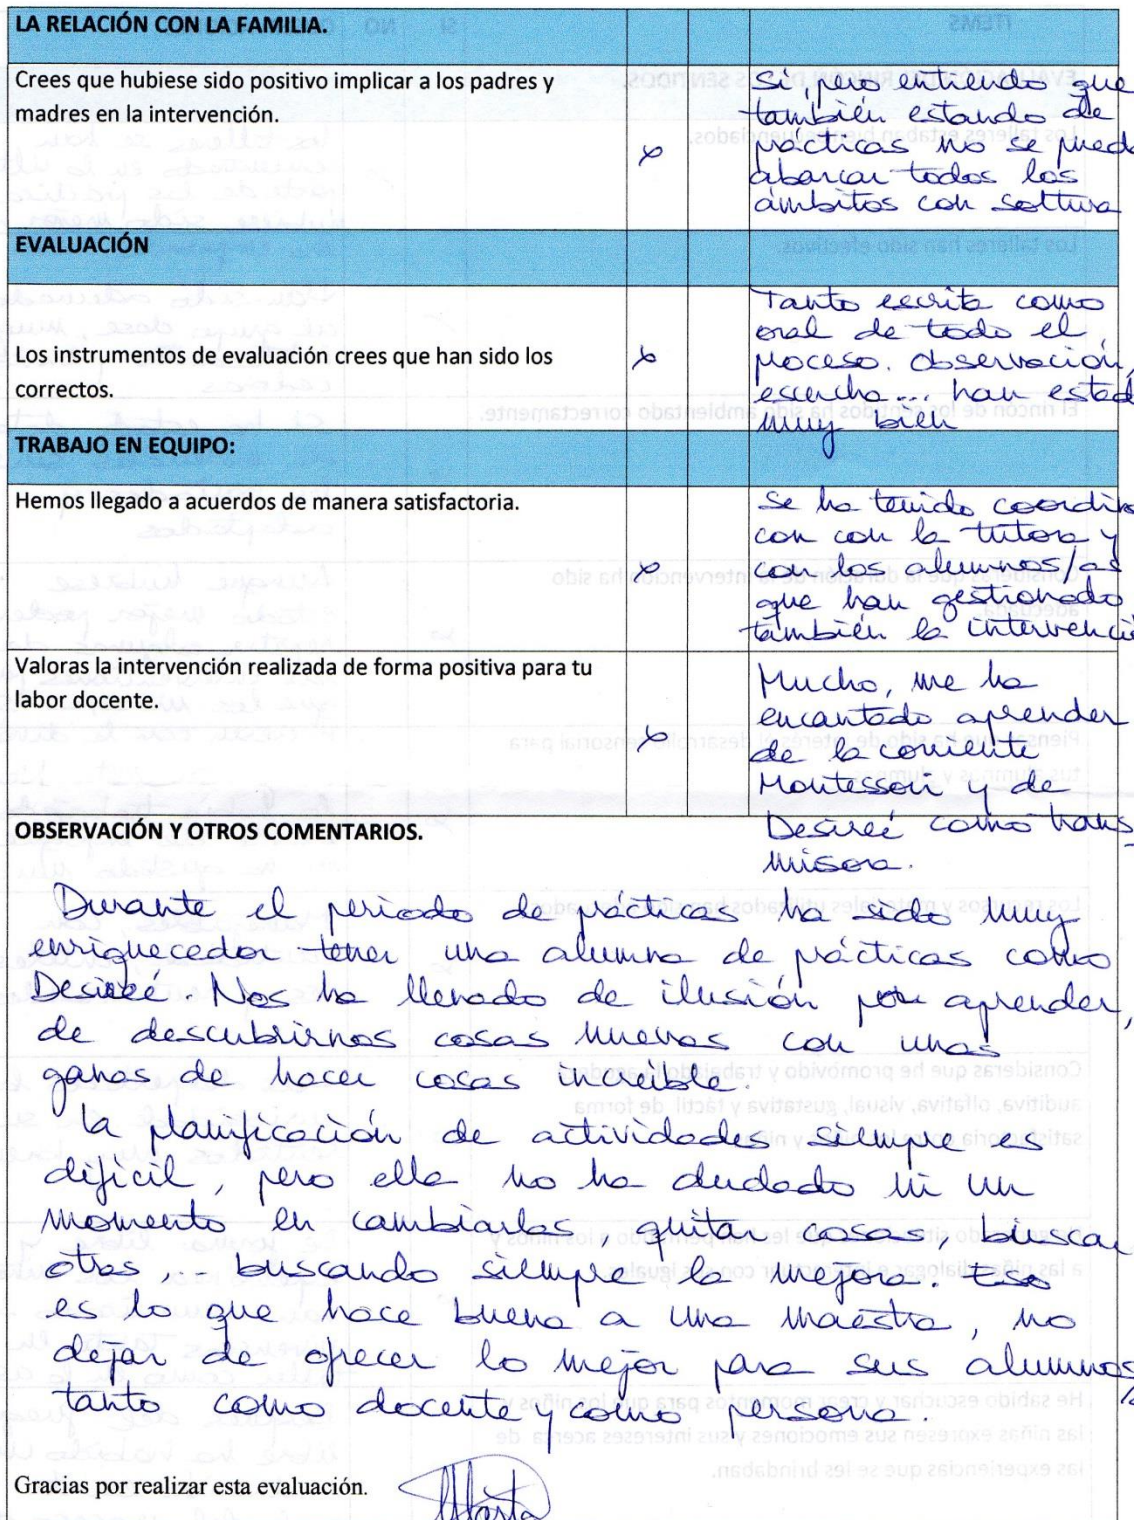 LA RELACIÓN CON LA FAMILIA.
Crees que hubiese sido positivo implicar a los padres y
madres en la intervención.
x
Si, pero entiendo que
también estando de
prácticas no se puede
abarcar todos los
ámbitos con soltura
EVALUACIÓN
Los instrumentos de evaluación crees que han sido los
correctos.
x
Tanto escrita como
oral de todo el
proceso. Observación,
escucha... han estad
muy bien
TRABAJO EN EQUIPO:
Hemos llegado a acuerdos de manera satisfactoria.
x
Se ha tenido coordina
con con la tutora y
con los alumnos/as
que han gestionado
también la intervenció
Valoras la intervención realizada de forma positiva para tu
labor docente.
x
Mucho, me ha
encantado aprender
de la corriente
Montessori y de
Desireé como trans-
misora.
OBSERVACIÓN Y OTROS COMENTARIOS.
Durante el periodo de prácticas ha sido muy
enriquecedor tener una alumna de prácticas como
Desireé. Nos ha llenado de ilusión por aprender,
de descubrirnos cosas nuevas con unas
ganas de hacer cosas increíble.
La planificación de actividades siempre es
difícil, pero ella no ha dudado ni un
momento en cambiarlas, quitar cosas, buscar
otras,... buscando siempre la mejora. Eso
es lo que hace buena a una maestra, no
dejar de ofrecer lo mejor para sus alumnos/
tanto como docente y como persona.
Gracias por realizar esta evaluación.
Marta